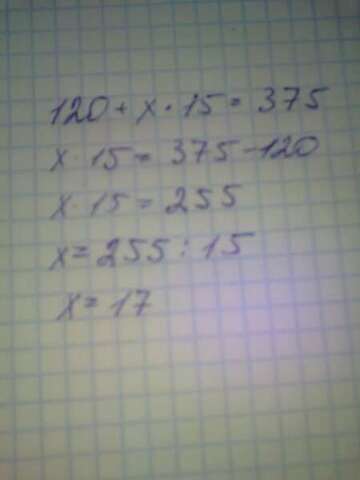 120 + x · 15 = 375
x · 15 = 375 - 120
x · 15 = 255
x = 255 : 15
x = 17